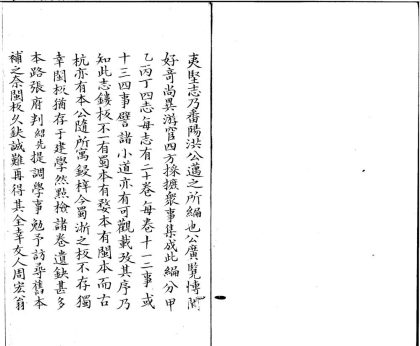 夷堅志乃番陽洪公邁之所編也公廣覽博聞
好奇尚異游宦四方採摭衆事集成此編分甲
乙丙丁四志每志有二十卷每卷十一二事或
十三四事譬諸小道亦有可觀載攷其序乃
知此志鏤板不一有蜀本有婺本有閩本而古
杭亦有本公隨所寓鋟梓今蜀浙之板不存獨
幸閩板猶存于建學然點檢諸卷遺缺甚多
本路張府判紹先提調學事勉予訪尋舊本
補之奈閩板久缺誠難再得其全幸友人周宏翁